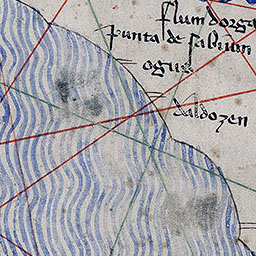 flum d orga
punta de sabium
ogus
daldozen